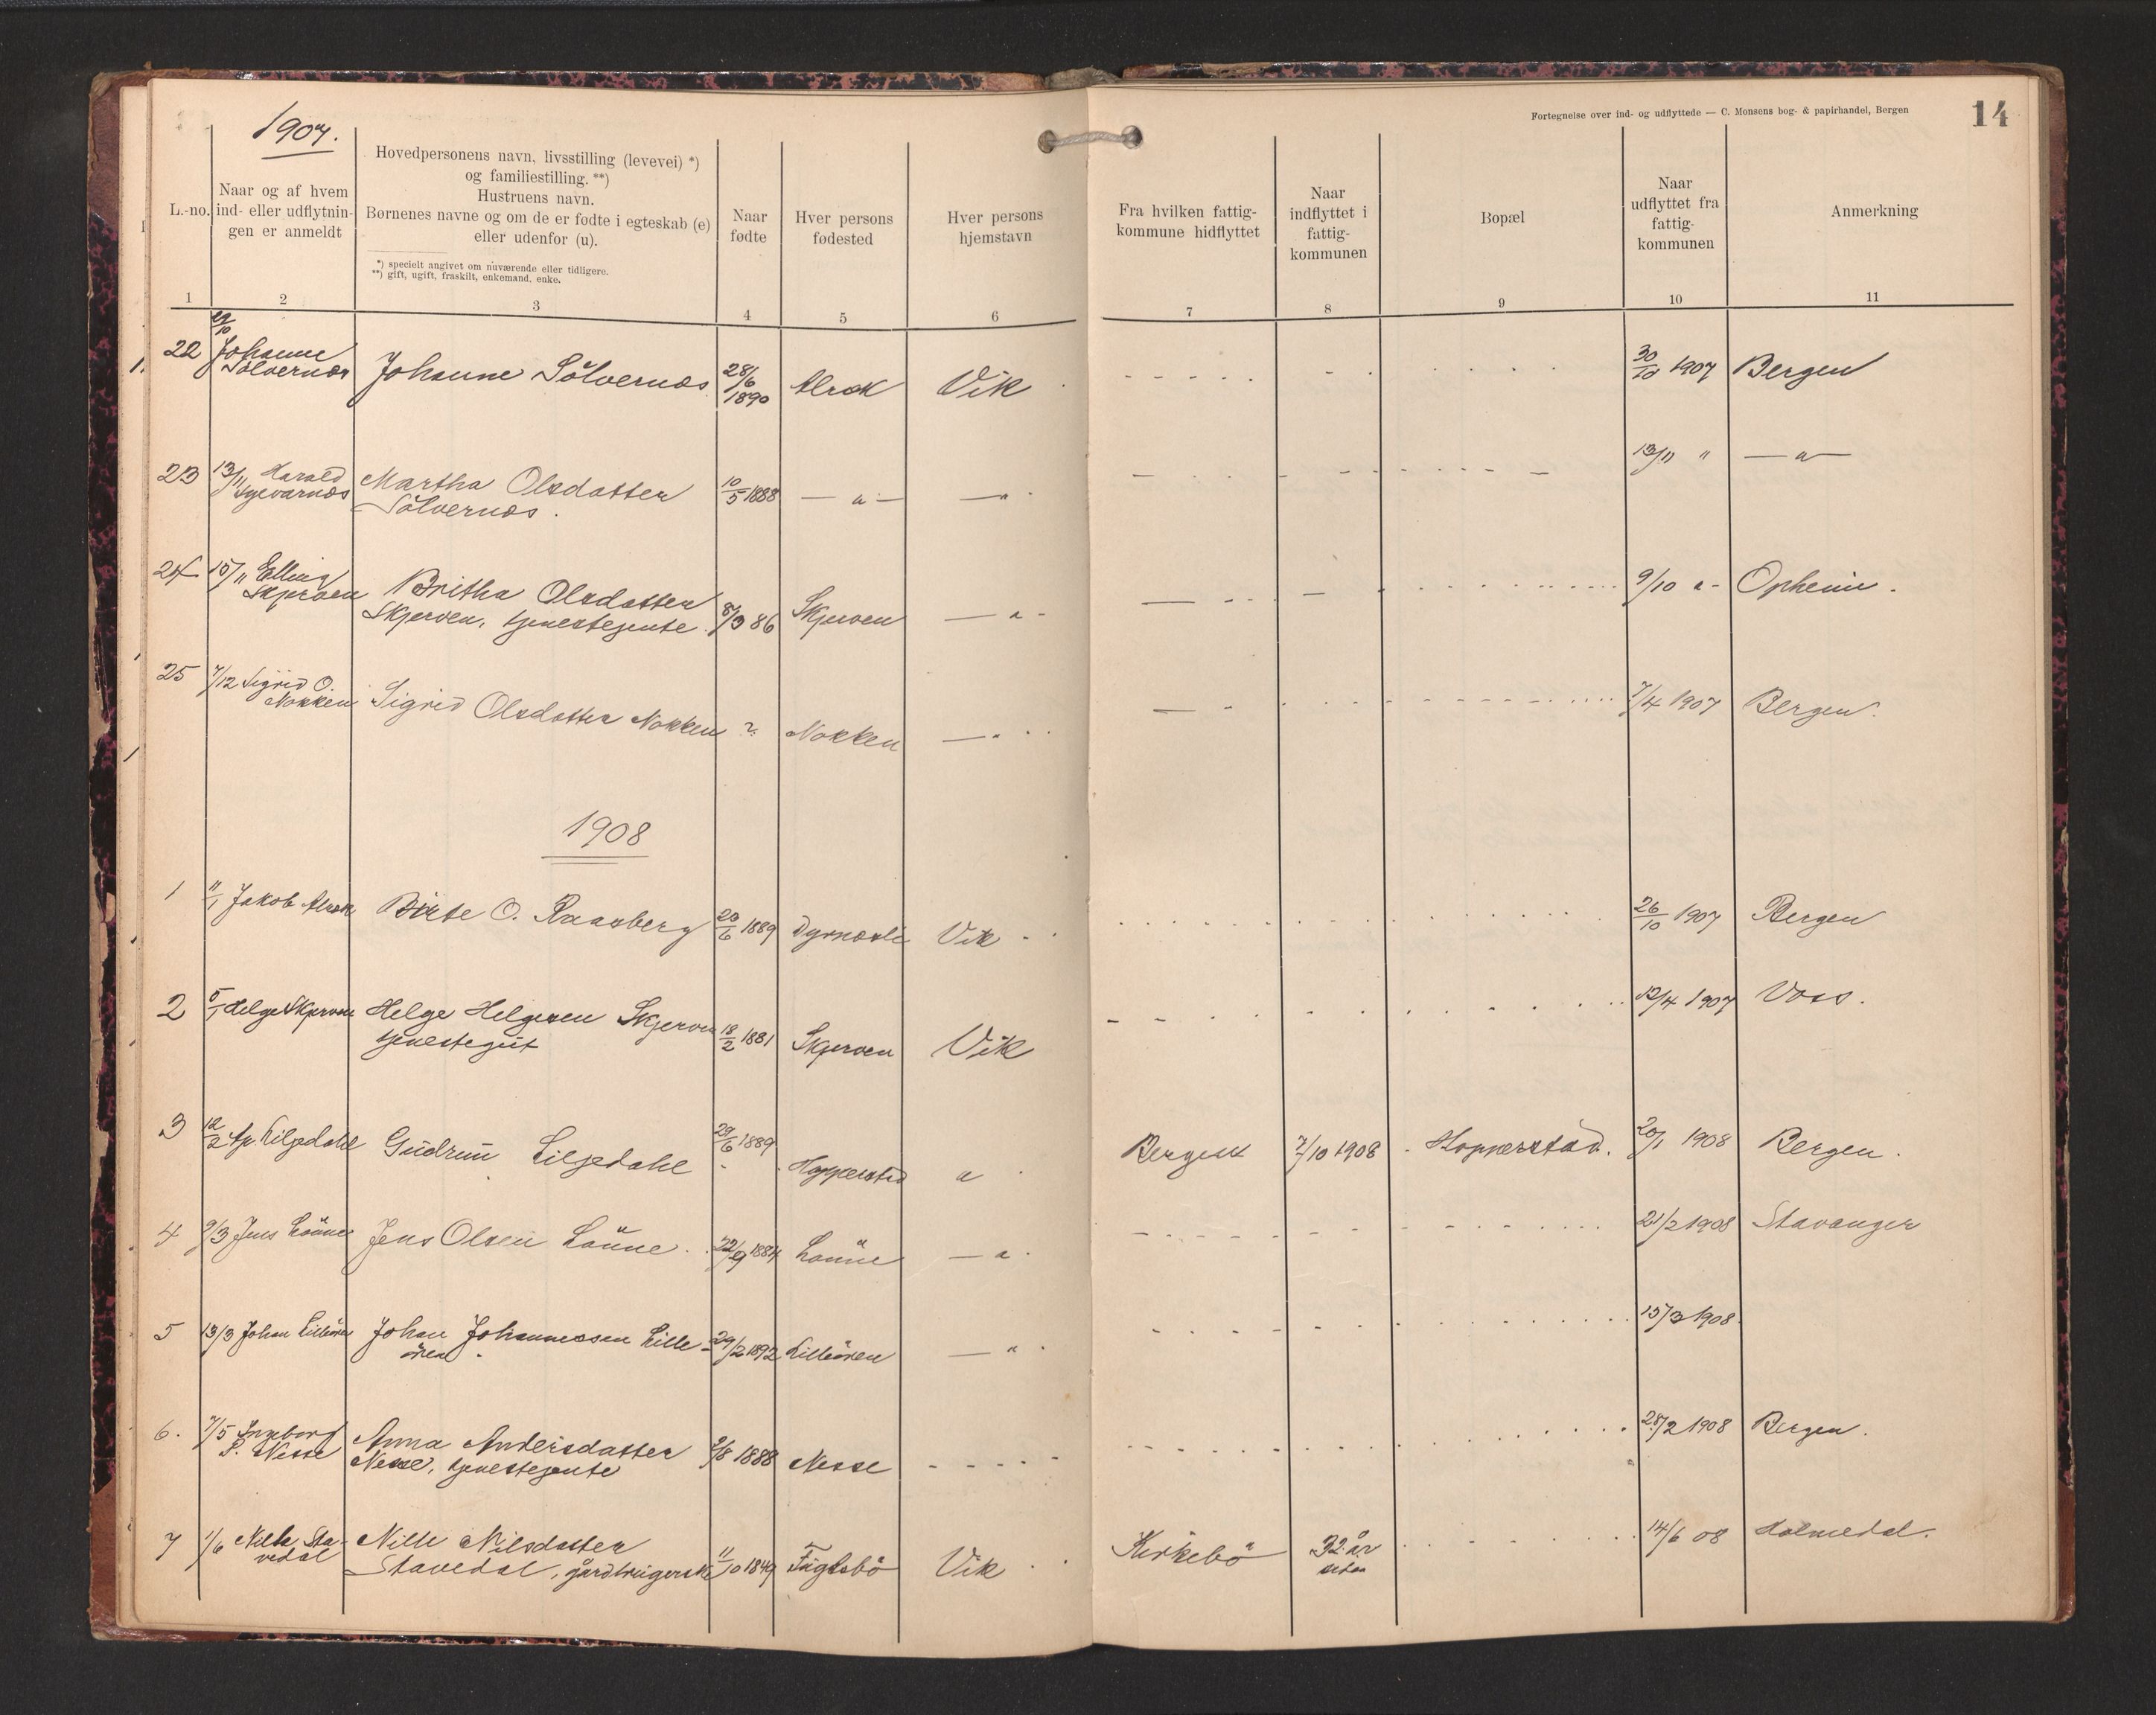 1907.
Fortegnelse over ind- og udflyttede — C. Monsens bog- & papirhandel, Bergen
14
L.-no.
Naar og af hvem
ind- eller udflytnin-
gen er anmeldt
Hovedpersonens navn, livsstilling (levevei) *)
og familiestilling. **)
Hustruens navn.
Børnenes navne og om de er fødte i egteskab (e)
eller udenfor (u).
*) specielt angivet om nuværende eller tidligere.
**) gift, ugift, fraskilt, enkemand, enke.
Naar
fødte
Hver persons
fødested
Hver persons
hjemstavn
Fra hvilken fattig-
kommune hidflyttet
Naar
indflyttet i
fattig-
kommunen
Bopæl
Naar
udflyttet fra
fattig-
kommunen
Anmerkning
1 2 3 4 5 6 7 8 9 10 11
22 Johanne Sölvernæs Johanne Sölvernæs 28/6 1890 Vik 30/10 1907 Bergen
23 13/11 Harald Martha Olsdatter 10/5 1888 — " — — " 13/11 " — " —
Sölvernæs.
24 15/11 Elling Britha Olsdatter
Skjerven Skjerven, tjenestejente 8/3 86 Skjerven — " - 9/10 " - Opheim.
25 7/12 Sigrid O. Nokken Sigrid Olsdatter Nokken ? Nokken — " 7/4 1907 Bergen.
1908
1 11/1 Jakob O. 20/6 1889 Vik 26/10 1907 Bergen
2 5/1 Helge Skjerven Helge Helgesen Skjerven 18/2 1881 Skjerven Vik 12/4 1907 Voss.
tjenestegut
3 12/2 Liljedahl Gudrun Liljedahl 29/6 1889 Hopperstad " Bergen 7/10 1908 Hopperstad. 20/1 1908 Bergen.
4 9/3 Jens Lönne Jens Olsen Lönne. 22/9 1884 Lönne — " 21/2 1908 Stavanger
5 13/3 Johan Lilleören Johan Johannessen Lille- 29/2 1892 Lilleören — " 15/3 1908.
ören
6. 7/5 Nesse Anna Andersdatter
Nesse, tjenestejente 9/8 1888 Nesse 28/2 1908 Bergen.
7 1/6 Nille Sta-
vedal Nille Nilsdatter
Stavedal, gårdbrugerske 11/10 1849 Fuglebö Vik Kirkebö 32 år
siden 14/6 08 Holmedal.